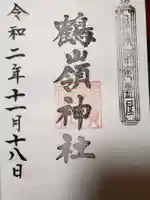 鶴嶺神社
令和二年十一月十八日